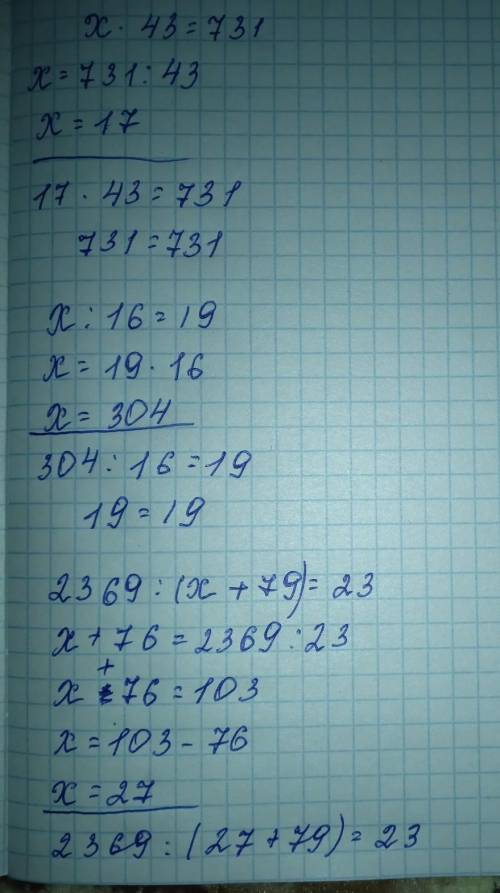 x · 43 = 731
x = 731 : 43
x = 17
17 · 43 = 731
731 = 731
x : 16 = 19
x = 19 · 16
x = 304
304 : 16 = 19
19 = 19
2369 : (x + 79) = 23
x + 76 = 2369 : 23
x + 76 = 103
x = 103 - 76
x = 27
2369 : (27 + 79) = 23